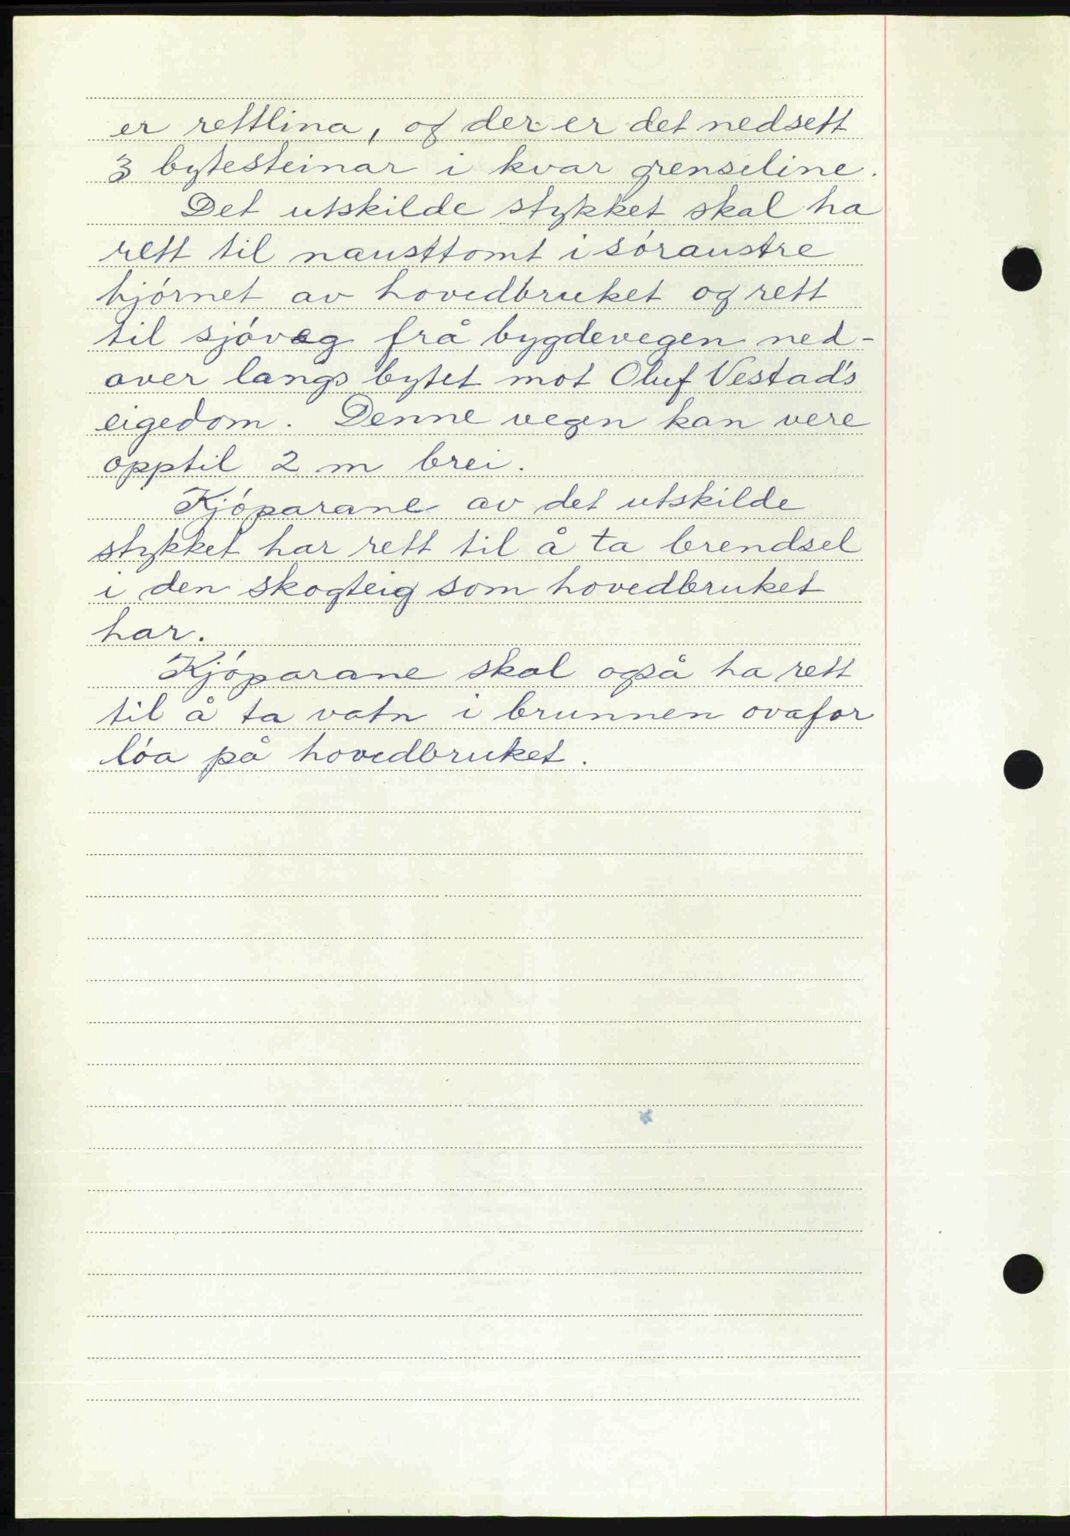 er rettlina, og der er det nedsett
3 bytesteinar i kvar grenseline.
Det utskilde stykket skal ha
rett til nausttomt i sóraustre
hjórnet av hovedbruket og rett
til sjóveg frå bygdevegen ned-
over langs bytet mot Oluf Vestad's
eigedom. Denne vegen kan vere
opptil 2 m brei.
Kjóparane av det utskilde
stykket har rett til å ta brendsel
i den skogteig som hovedbruket
har.
Kjóparane skal også ha rett
til å ta vatn i brunnen ovafor
lóa på hovedbruket.